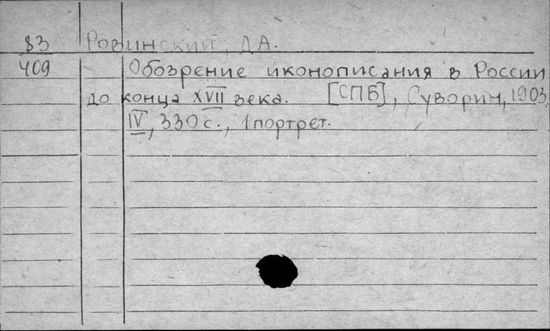 83 Ровинский, Д.А.
409 Обозрение иконописания в России
до конца XVII века. [СПБ], Суворин, 1903
IV, 330 с., 1 портрет.